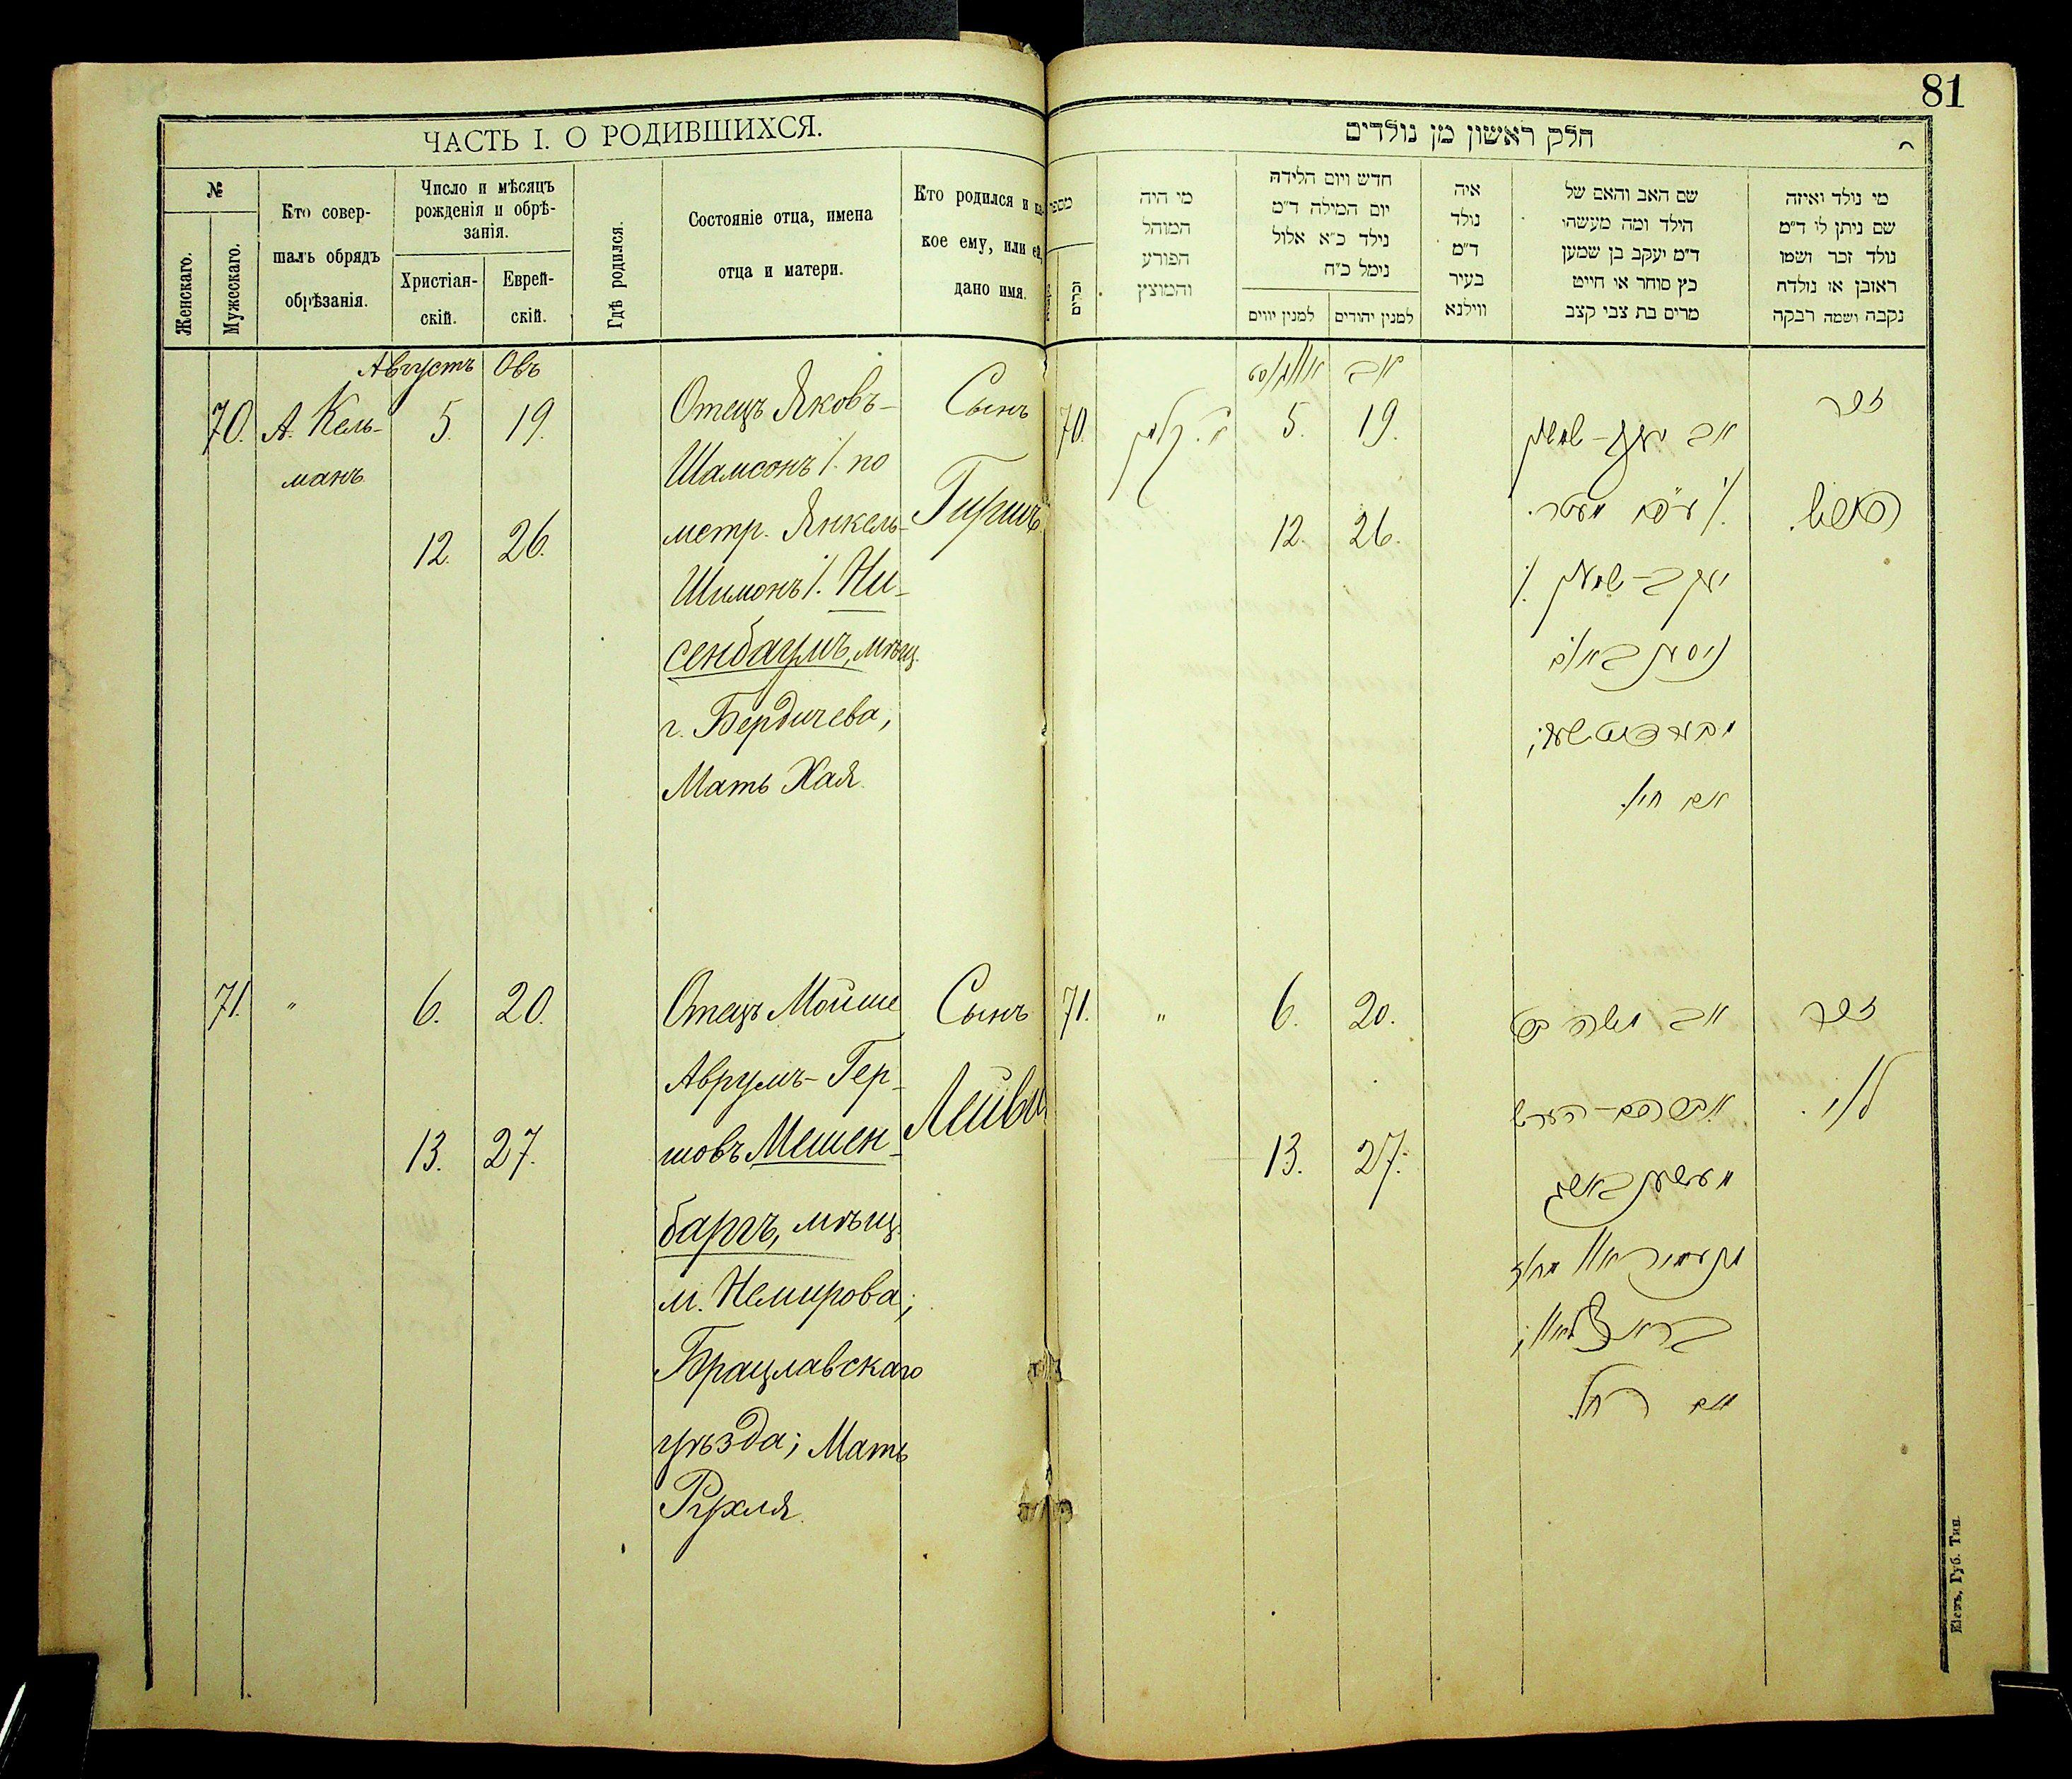 81
ЧАСТЬ I. О РОДИВШИХСЯ.
№
Женскаго.
Мужескаго.
Кто совер-
шалъ обрядъ
обрѣзанія.
Число и мѣсяцъ
рожденія и обрѣ-
занія.
Христіан-
скій.
Еврей-
скій.
Гдѣ родился.
Состояніе отца, имена
отца и матери.
Кто родился и ка-
кое ему, или ей,
дано имя.
Августъ Овъ
70. А. Кель-
манъ
5. 19.
12. 26.
Отецъ Яковъ-
Шамсонъ /. по
метр. Янкель-
Шимонъ /. Ни-
сенбаумъ, мѣщ.
г. Бердичева,
Мать Хая.
Сынъ
Гиршъ
71. „ 6. 20.
13. 27.
Отецъ Мойше
Аврумъ-Гер-
шовъ Мешен-
баргъ, мѣщ.
м. Немирова;
Брацлавскаго
уѣзда; Мать
Рухля.
Сынъ
Лейви
חלק ראשון מן נולדים
מספר
זכרים
מי היה
המוהל
הפורע
והמוצץ
חדש ויום הלידה
יום המילה ד״מ
נילד כ״א אלול
נימל כ״ח
למנין יווים
למנין יהודים
איה
נולד
ד״מ
בעיר
ווילנא
שם האב והאם של
הילד ומה מעשהי
ד״מ יעקב בן שמען
כץ סוחר או חייט
מרים בת צבי קצב
מי נולד ואיזה
שם ניתן לי ד״מ
נולד זכר ושמו
ראובן או נולדה
נקבה ושמה רבקה
אויגוסט אב
70. א. קלמן 5. 19.
12. 26.
אב יעקב-שמשון
יעקב-שמעון /.
ניסענבוים
אם חי׳.
זכר
הירש.
71. „ 6. 20.
13. 27.
אב משה
אברהם-הערש
אם רחל.
זכר
לוי.
Кіевъ, Губ. Тип.